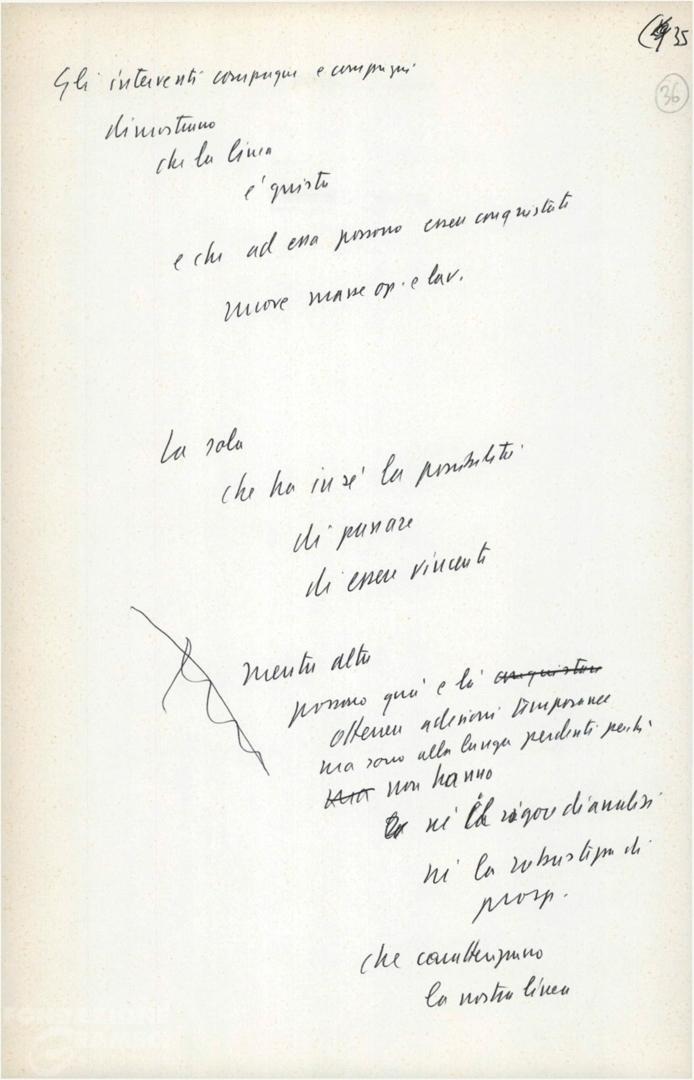 35
36
Gli interventi compagne e compagni
dimostrano
che la linea
e' giusta
e che ad essa possono essere conquistate
nuove masse op. e lav.
La sola
che ha in sé la possibilità
di passare
di essere vincente
mentre altre
possono qua e là conquistare
ottenere adesioni temporanee
ma sono alla lunga perdenti perché
ma non hanno
né il rigore di analisi
né la robustezza di
prosp.
che caratterizzano
la nostra linea
FONDAZIONE
GRAMSCI